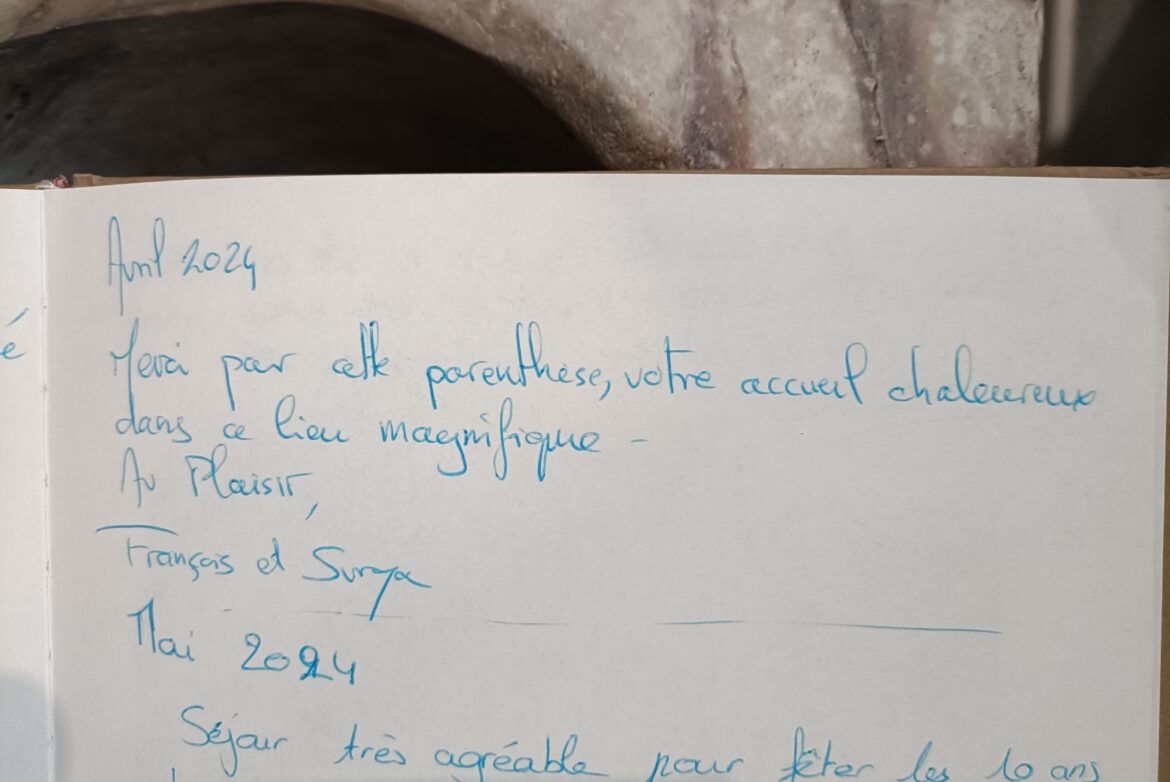 é
Avril 2024
Merci pour cette parenthèse, votre accueil chaleureux
dans ce lieu magnifique -
Au Plaisir,
François et Surya
Mai 2024
Séjour très agréable pour fêter les 10 ans